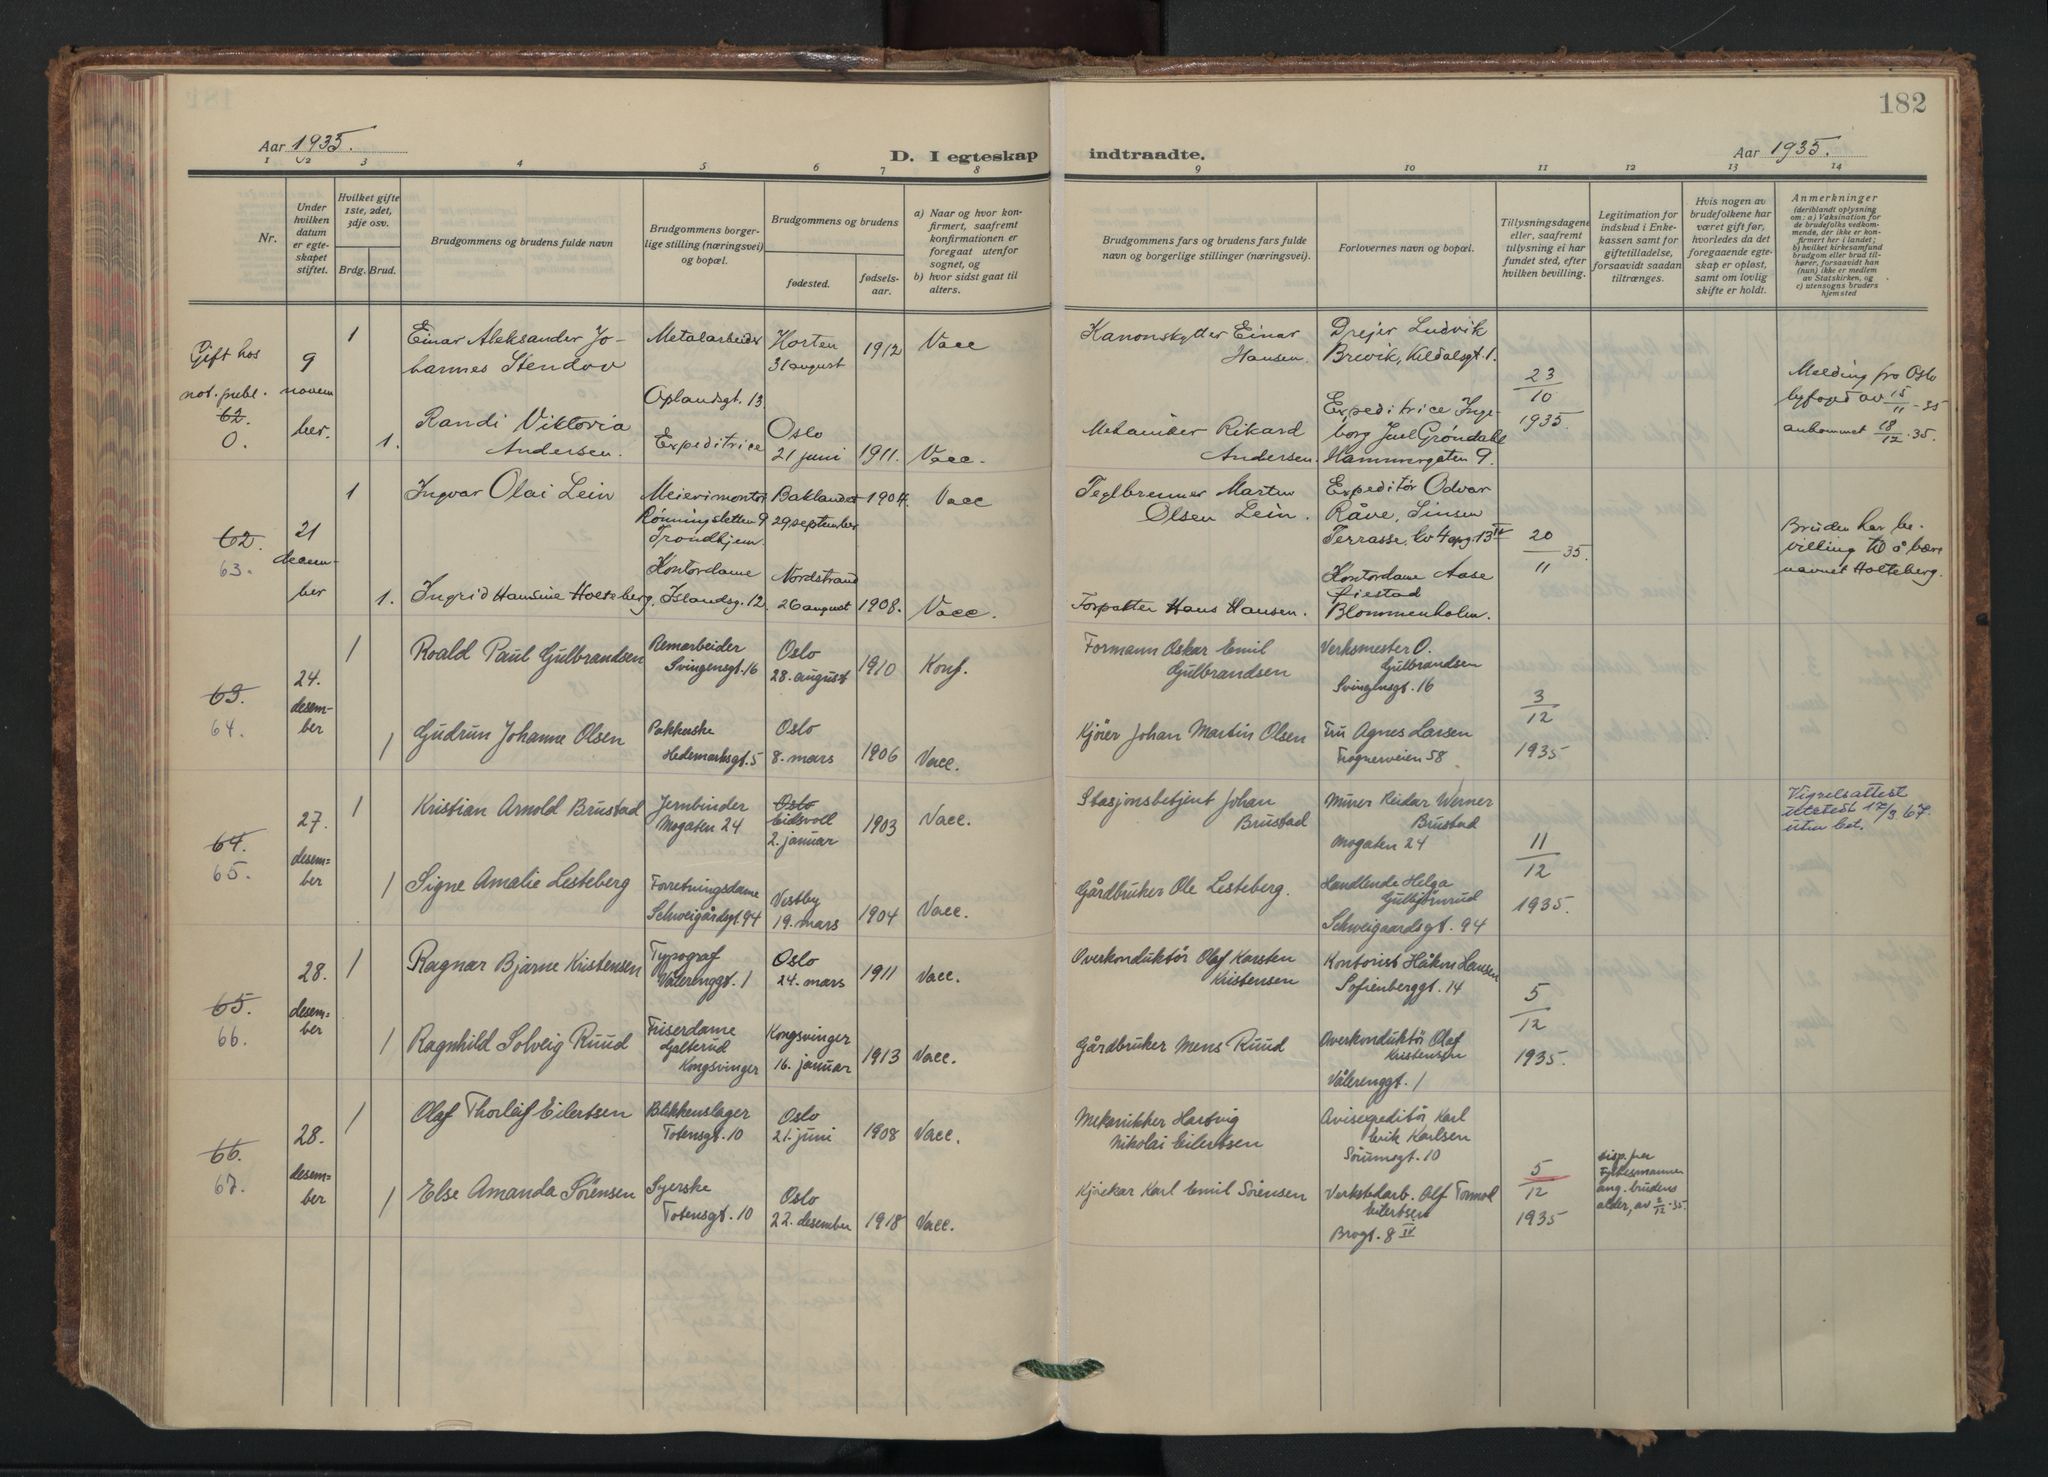 182
Aar 1935.
D. I egteskap indtraadte.
Aar 1935.
1 2 3 4 5 6 7 8 9 10 11 12 13 14
Nr.
Under hvilken datum er egteskapet stiftet.
Hvilket gifte 1ste, 2det, 3dje osv.
Brdg. Brud.
Brudgommens og brudens fulde navn
Brudgommens borgerlige stilling (næringsvei) og bopæl.
Brudgommens og brudens
fødested.
fødselsaar.
a) Naar og hvor konfirmert, saafremt konfirmationen er foregaaet utenfor sognet, og
b) hvor sidst gaat til alters.
Brudgommens fars og brudens fars fulde navn og borgerlige stillinger (næringsvei).
Forlovernes navn og bopæl.
Tillysningsdagene eller, saafremt tillysning ei har fundet sted, efter hvilken bevilling.
Legitimation for indskud i Enkekassen samt for giftetilladelse, forsaavidt saadan tiltrænges.
Hvis nogen av brudefolkene har været gift før, hvorledes da det foregaaende egteskap er opløst, samt om lovlig skifte er holdt.
Anmerkninger
(deriblandt oplysning om: a) Vaksination for de brudefolks vedkommende, der ikke er konfirmert her i landet; b) hvilket kirkesamfund brudgom eller brud tilhører, forsaavidt han (hun) ikke er medlem av Statskirken, og c) utensogns bruders hjemsted
Gift hos not. publ.
62.
0.
9 november.
1
Einar Aleksander Johannes Stendov
Metalarbeider
Oplandsgt. 13.
Horten
31 august
1912
Vacc
Kanonskytter Einar Hansen.
Drejer Ludvik Brevik, Kildalsgt. 1.
23/10 1935.
Melding fra Oslo byfoged av 15/11-35 ankommet 18/12.35.
1.
Randi Viktoria Andersen.
Expeditrice
Oslo
21 juni
1911.
Vacc.
Mekaniker Rikard Andersen.
Expeditrice Ingeborg Juel Grøndahl Hammergaten 9.
62.
63.
21 december
1
Ingvar Olai Lein
Meierimontør
Rønningsletten 9
Trondhjem.
Baklandet
29 september
1904.
Vacc
Teglbrenner Martin Olsen Lein.
Expeditør Odvar Råve, Sinsen Terrasse, kv 4 opg. 13 IV
20/11 35.
Bruden har bevilling til å bære navnet Holteberg.
1.
Ingrid Hansine Holteberg,
Kontordame
Islandsg. 12.
Nordstrand
26 august
1908.
Vacc.
Forpakter Hans Hansen.
Kontordame Aase fiestad Blommenholm.
63.
64.
24. desember
1
Roald Paul Gulbrandsen
Remarbeider
Svingensgt. 16
Oslo
28. august
1910
Konf.
Formann Oskar Emil Gulbrandsen
Verksmester O. Gulbrandsen
Svingensgt. 16
3/12 1935
1
Gudrun Johanne Olsen
Pakkerske
Hedemarksgt. 5
Oslo
8. mars
1906
Vacc.
Kjører Johan Martin Olsen
Fru Agnes Larsen
Frognerveien 58
64.
65.
27. desember
1
Kristian Arnold Brustad
Jernbinder
Mogaten 24
Oslo
Eidsvoll
2. januar
1903
Vacc.
Stasjonsbetjent Johan Brustad
Murer Reidar Werner Brustad
Mogaten 24
11/12 1935.
Vigselsattest utstedt 17/3 67. uten bet.
1
Signe Amalie Lesteberg
Forretningsdame
Schweigårdsgt. 94
Vestby
19. mars
1904
Vacc.
Gårdbruker Ole Lesteberg.
Handlende Helga Gulbjörnrud
Schweigaardsgt. 94
65.
66.
28. desember
1
Ragnar Bjarne Kristensen
Typograf
Vålerenggt. 1
Oslo
24. mars
1911
Vacc.
Overkonduktör Olaf Karsten Kristensen
Kontorist Håkon Hansen
Sofienberggt. 14
5/12 1935.
1
Ragnhild Solveig Ruud
Friserdame
Galterud
Kongsvinger
Kongsvinger
16. januar
1913
Vacc.
Gårdbruker Mens Ruud
Overkonduktör Olaf Kristensen
Vålerenggt. 1
66.
67.
28. desember
1
Olaf Thorleif Eilertsen
Blikkenslager
Totensgt. 10
Oslo
21. juni
1908
Vacc.
Mekanikker Hartvig Nikolai Eilertsen
Avisexpeditör Karl Erik Karlsen
Sörumsgt. 10
5/12 1935
disp. fra fylkesmannen ang. brudens alder, av 2/12-35.
1
Else Amanda Sörensen
Syerske
Totensgt. 10
Oslo
22. desember
1918
Vacc.
Kjörekar Karl Emil Sörensen
Verkstedarb. Alf Tormod Eilertsen
Brogt. 8 IV